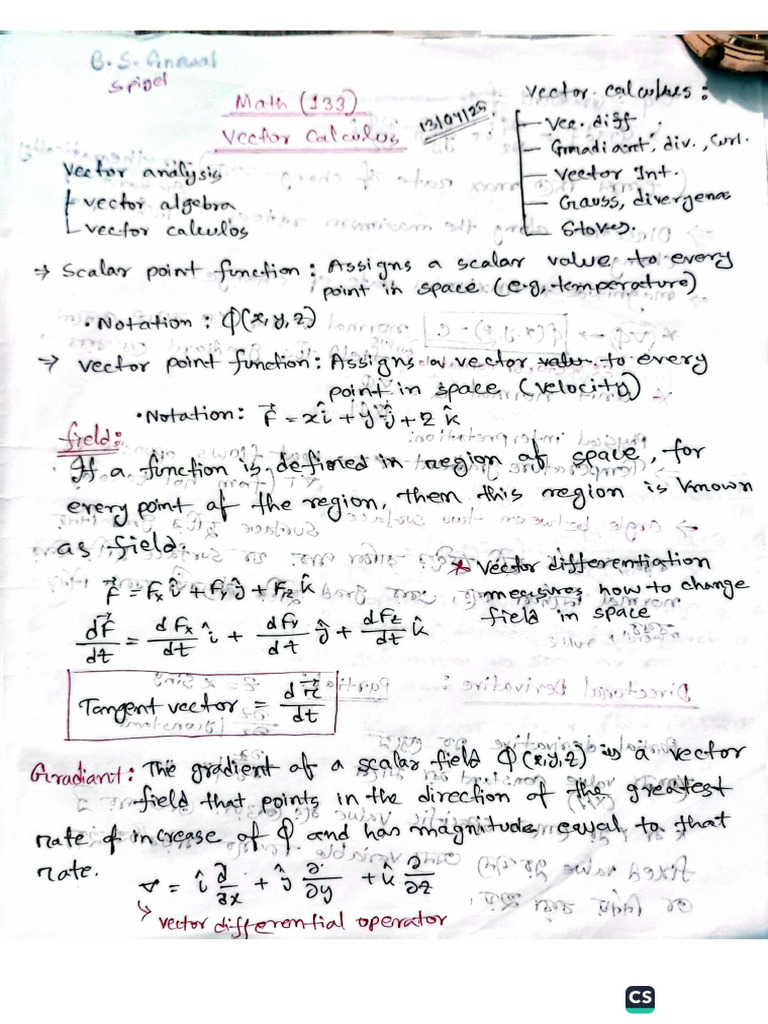 B.S. Grewal
Spigel
Math (133)
Vector Calculus
13/04/25
Vector calculus:
Vec. diff
Gradiant, div., Curl.
Vector Int.
Gauss, divergence
Stoves.
Vector analysis
vector algebra
vector calculus
⇒ Scalar point function: Assigns a scalar value to every
point in space (e.g, temperature)
• Notation: φ(x,y,z)
⇒ Vector point function: Assigns a vector value to every
point in space (velocity)
• Notation: r⃗ = xî + yĵ + zk̂
field:
If a function is defined in region of space, for
every point of the region, then this region is known
as field.
F⃗ = Fxî + Fyĵ + Fzk̂
dF⃗/dt = dFx/dt î + dFy/dt ĵ + dFz/dt k̂
* Vector differentiation
measures how to change
field in space
Tangent vector = dr⃗/dt
Gradiant: The gradient of a scalar field φ(x,y,z) is a vector
field that points in the direction of the greatest
rate of increase of φ and has magnitude equal to that
rate.
∇ = î ∂/∂x + ĵ ∂/∂y + k̂ ∂/∂z
↳ vector differential operator
CS